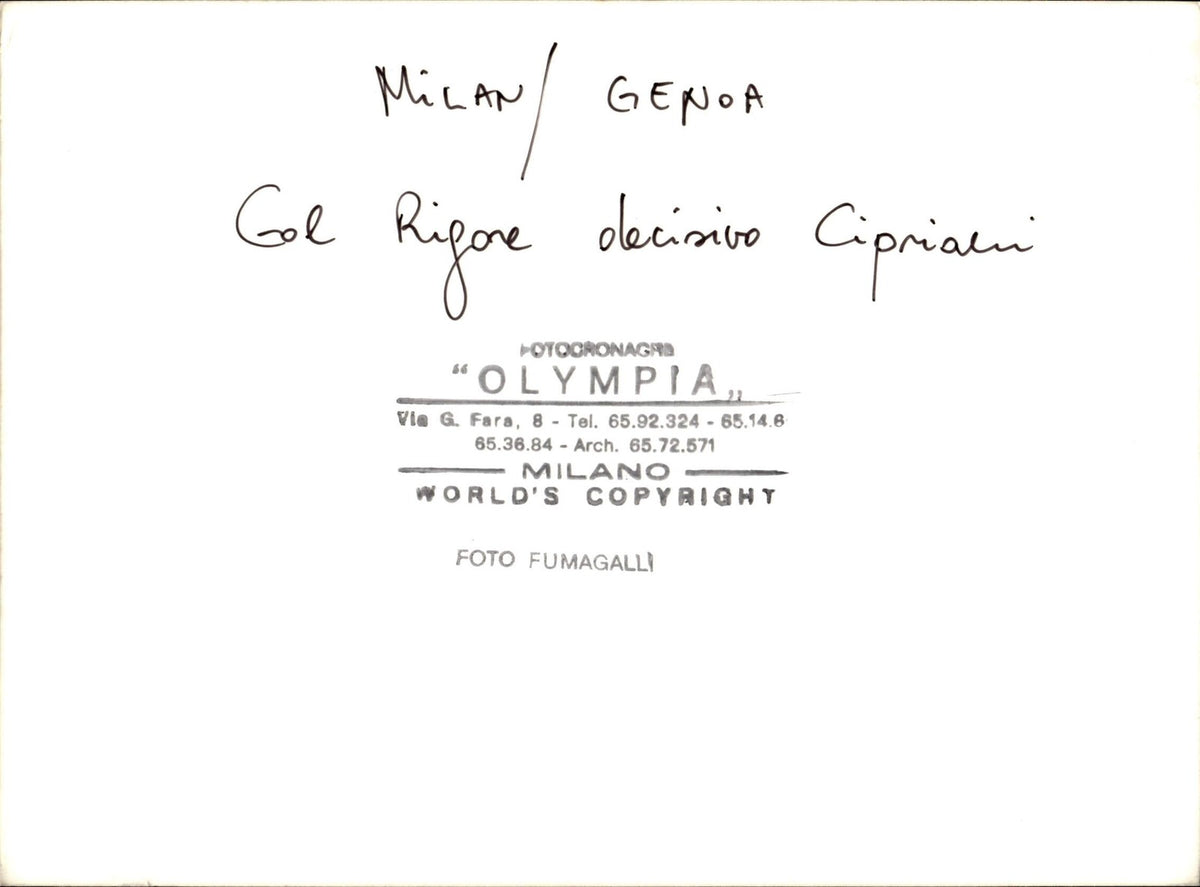 MiLAN / GENOA
Gol Rigore decisivo Cipriani
FOTOCRONACHE
“OLYMPIA„
Via G. Fara, 8 - Tel. 65.92.324 - 65.14.6
65.36.84 - Arch. 65.72.571
MILANO
WORLD'S COPYRIGHT
FOTO FUMAGALLI